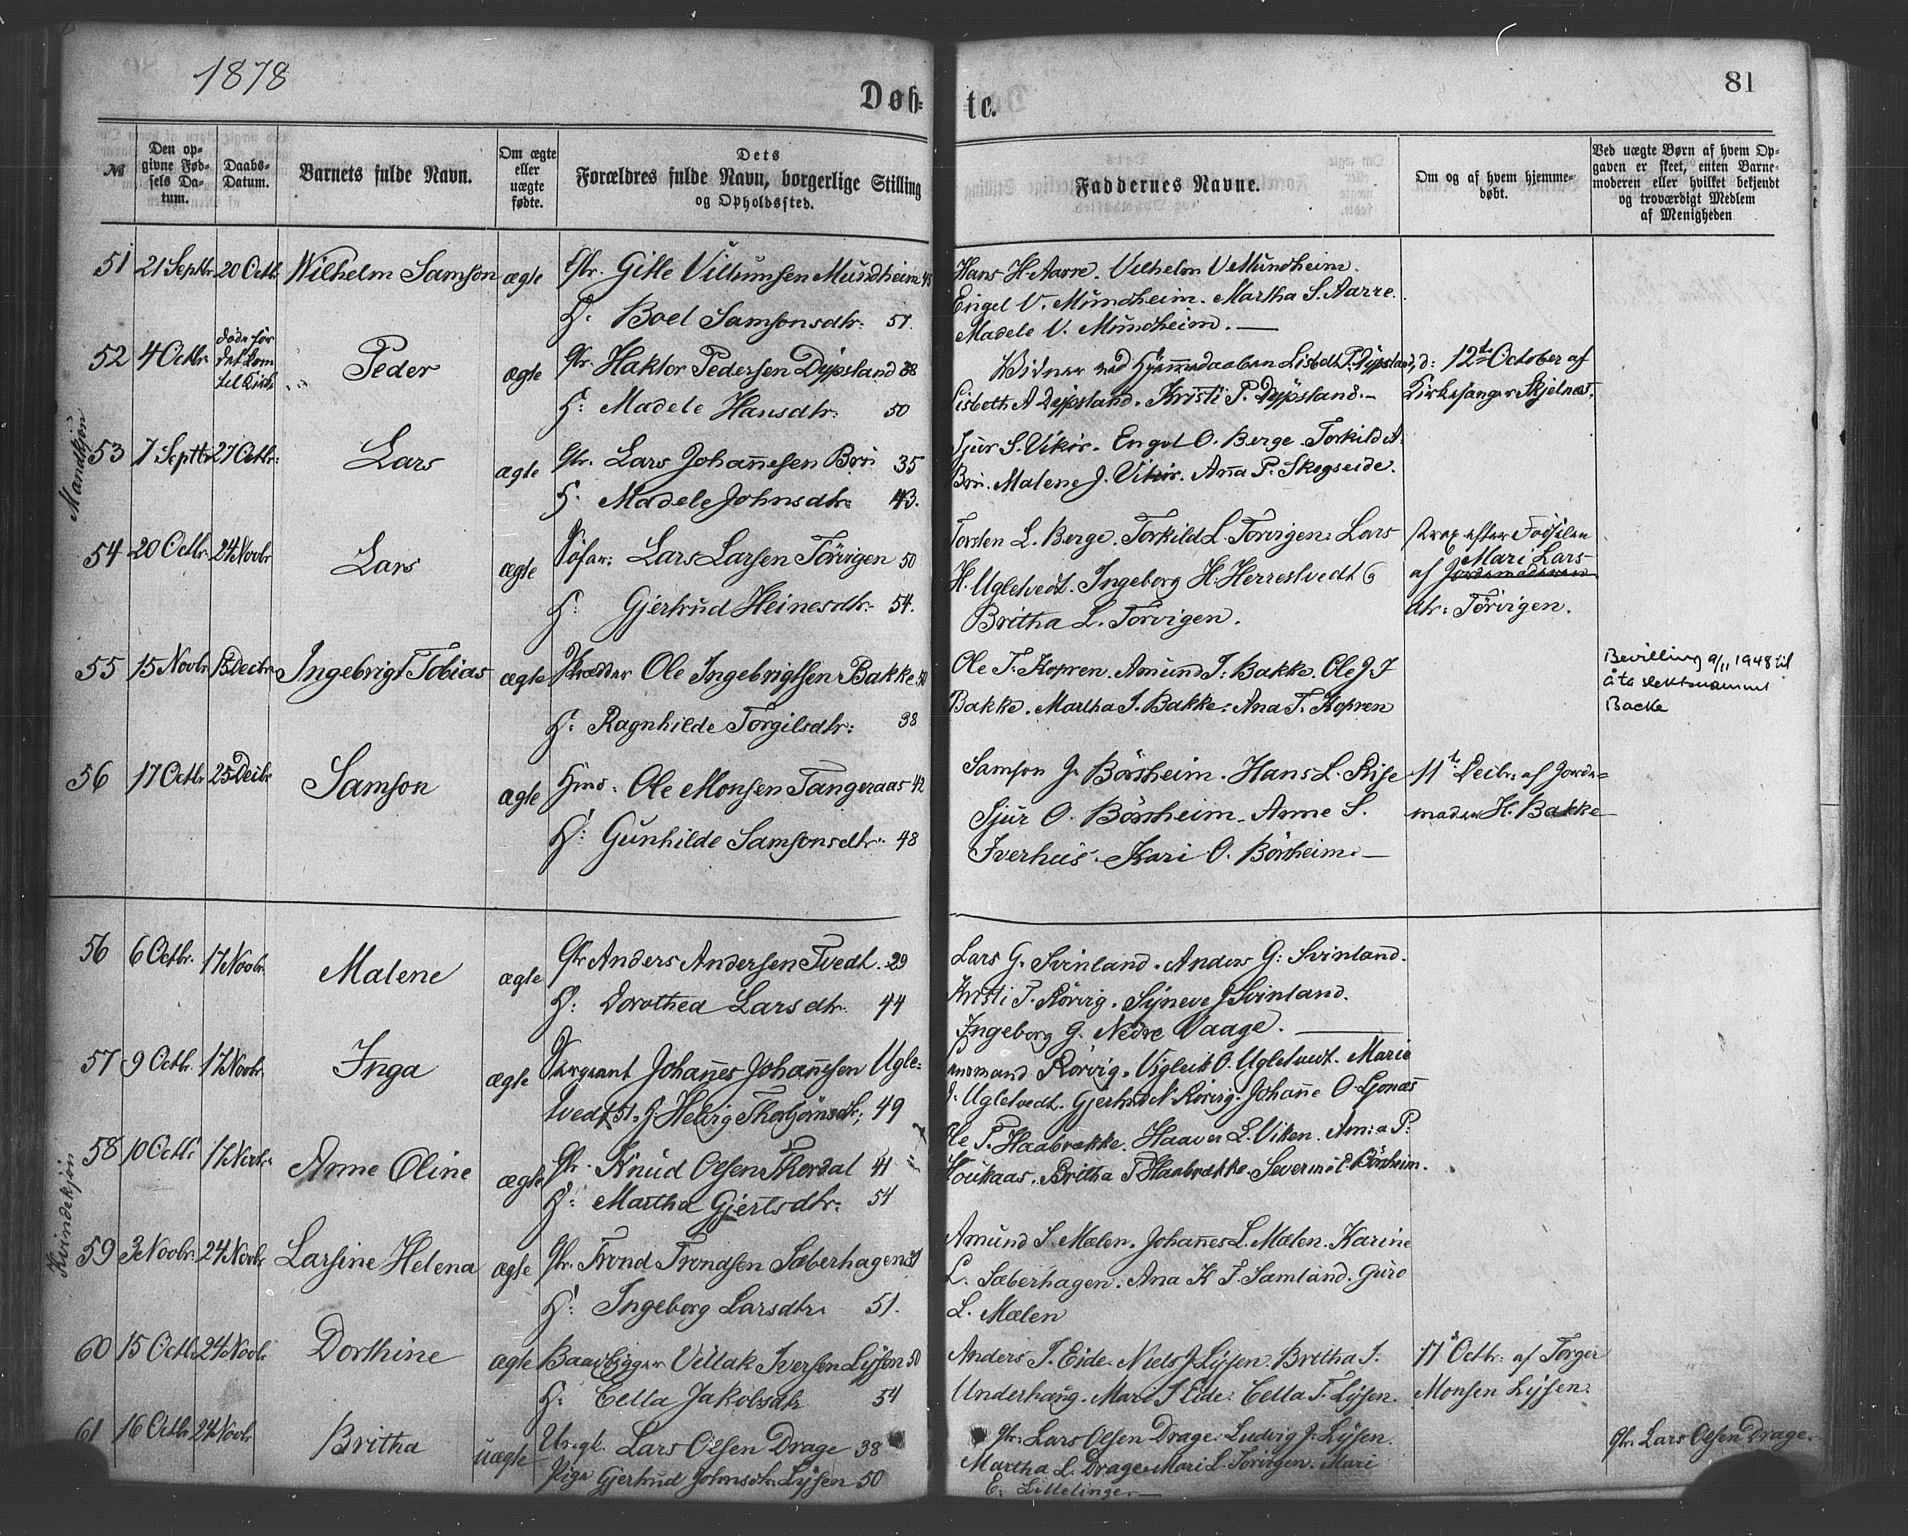 1878
Døb-
te.
81
№
Den op-
givne Fød-
sels Da-
tum.
Daabs-
Datum.
Barnets fulde Navn.
Om ægte
eller
uægte
fødte.
Dets
Forældres fulde Navn, borgerlige Stilling
og Opholdssted.
Faddernes Navne.
Om og af hvem hjemme-
døbt.
Ved uægte Børn af hvem Op-
gaven er skeet, enten Barne-
moderen eller hvilket bekjendt
og troværdigt Medlem
af Menigheden
Mandkjøn
51 21 Septbr. 20 Octb. Wilhelm Samson ægte Gbr. Gitle Villumsen Mundheim 45
H: Boel Samsonsdtr: 51.
Hans H. Aarre. Vilhelm V. Mundheim.
Engel V. Mundheim. Martha S. Aarre.
Madele V. Mundheim.
52 4 Octbr. døde før
det kom
til Kirk
Peder ægte Gbr. Haktor Pedersen Dypsland 38
H: Madele Hansdtr: 50
Vidner ved Hjemmedaaben Lisbeth P. Dypsland,
Lisbeth A Dypsland. Kristi P. Dypsland.
d: 12te October af
Kirkesanger Skjelnes.
53 7 Septbr 27 Octbr: Lars ægte Gbr. Lars Johannesen Bru 35
H: Madele Johnsdtr: 43.
Sjur S. Vikør. Engel O. Berge. Torkild A.
Bru. Malene J. Vikør. Anna P. Skogseide.
54 20 Octbr. 24 Novbr Lars ægte Lars Larsen Törvigen 50
H: Gjertrud Heinesdtr. 54.
Torsten L. Berge. Torkild L. Torvigen. Lars
H. Ugletvedt. Ingeborg H. Herrestvedt
Britha L. Torvigen.
strax efter Fødselen
Mari Lars-
af Jordemoderen
dtr: Törvigen.
55 15 Novbr 15 Decbr. Ingebrigt Tobias ægte Skrædder Ole Ingebrigtsen Bakke 40
H: Ragnhilde Torgilsdtr: 38
Ole T. Kopren. Amund T. Bakke. Ole J. T
Bakke. Martha I. Bakke. Ana T. Kopren
Bevilling 9/11 1948 til
å ta slektsnavnet
Backe
56 17 Octbr 25 Decbr Samson ægte Hmd. Ole Monsen Tangeraas 42
H: Gunhilde Samsonsdtr. 48
Samson J. Börsheim. Hans L. Rise
Sjur O. Börsheim. Anne S.
Iverhus. Kari O. Börsheim.
11te Decbr. af Jorde-
moder H. Bakke
Kvindekjøn
56 6 Octbr. 17 Novbr. Malene ægte Gbr Anders Andersen Tvedt. 29
H: Dorothea Larsdtr. 44
Lars G. Svinland. Anders G. Svinland.
Kristi T. Rörvig. Syneve J Svinland.
Ingeborg G. Nedre Vaage.
57 9 Octbr. 17 Novbr. Inga ægte Sergeant Johannes Johannesen Ugle-
tvedt 51. H: Helvig Thorbjörnsdtr, 49
Rörvig. Vigleik O. Ugletvedt. Marie
J. Ugletvedt. Gjertrud N. Rörvig. Johanne O. Ljonæs
58 10 Octbr 17 Novbr. Anne Oline ægte Gbr. Knud Olsen Thordal 41
H: Martha Gjertsdtr: 54
Ole P. Haabrække. Haaver L. Viken. Anna P.
Houkaas. Britha T Haabrække. Severine E. Börsheim.
59 3 Novbr. 24 Novbr. Larsine Helena ægte Gbr. Trond Trondsen Sæberhagen 51
H: Ingeborg Larsdtr. 51.
Amund S. Mælen. Johannes L. Mælen. Karine
L. Sæberhagen. Ana K F. Samland. Guro
L. Mælen
60 15 Octbr 24 Novbr Dorthine ægte Baadbygger Villak Iversen Lysen 50
H: Cella Jakobsdtr 54
Anders T. Eide. Niels J Lysen. Britha I.
Underhaug. Mari I Eide. Cella T. Lysen.
17 Octbr: af Torger
Monsen Lysen.
61 16 Octbr 24 Novbr. Britha uægte Ungk. Lars Olsen Drage 38
Pige Gjertrud Johnsdtr Lysen 50
Gbr. Lars Olsen Drage. Ludvig J. Lysen.
Martha L. Drage. Mari L. Törvigen. Mari
E. Litletinger
Gbr. Lars Olsen Drage.